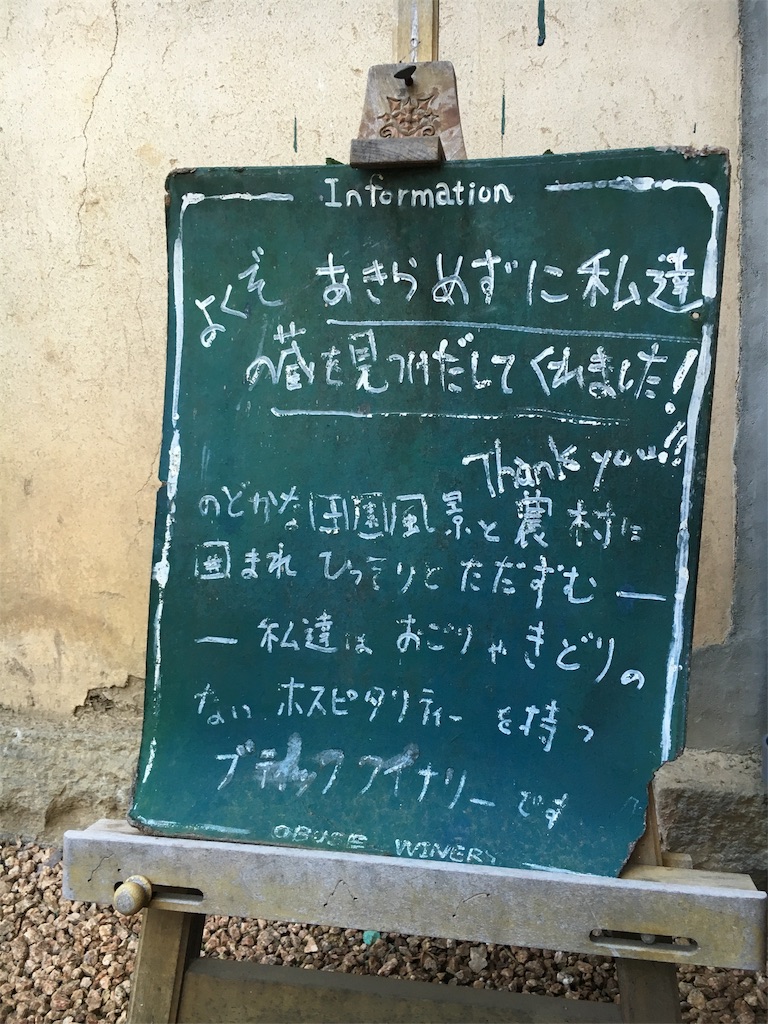 Information
よくぞ あきらめずに私達
の蔵を見つけだしてくれました!
Thank you!!
のどかな田園風景と農村に
囲まれ ひっそりと ただずむ —
— 私達は おごりやきどりの
ない ホスピタリティーを持つ
ブティックワイナリーです
OBUSE WINERY